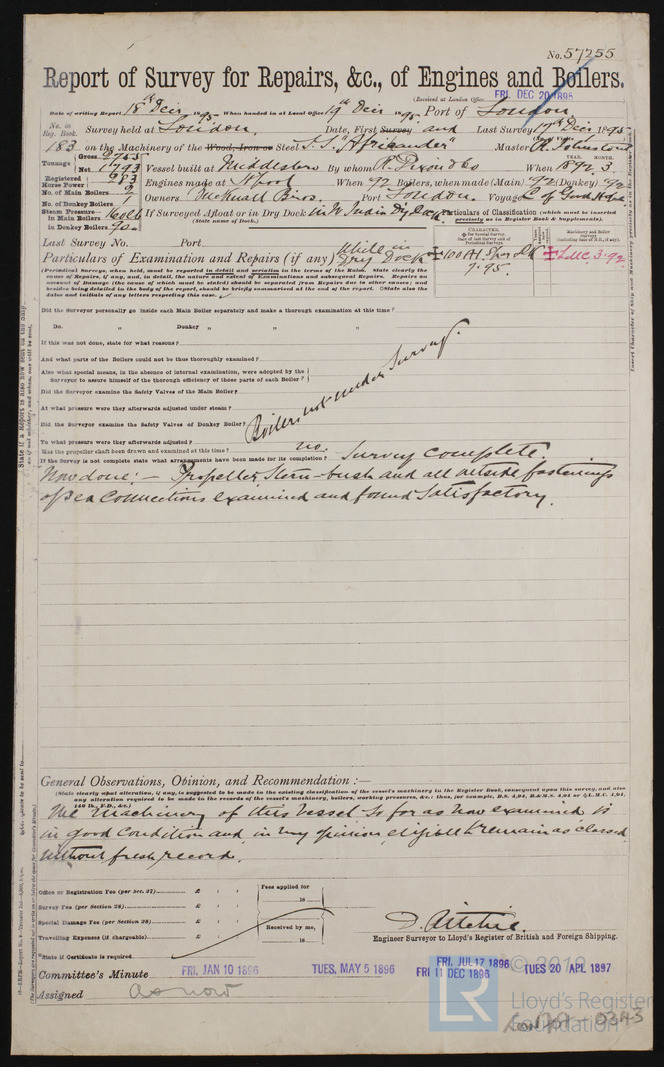 No. 57255
Report of Survey for Repairs, &c., of Engines and Boilers.
(Received at London Office FRI. DEC 20 1895
Date of writing Report 18th Decr 1895 When handed in at Local Office 19th Decr 1895 Port of London
No. in Reg. Book. Survey held at London. Date, First Survey and Last Survey 17th Decr 1895
183 on the Machinery of the Wood, Iron or Steel S.S. "Africander" Master R. Johnstone
Tonnage Gross
Net 1793
Vessel built at Middlesbro By whom R. Dixon & Co When 1892 3
YEAR. MONTH.
Registered Horse Power 283
Engines made at When 92 Boilers, when made (Main) 92 (Donkey) 92
No. of Main Boilers 2
Owners Bros. Port London. Voyage C. of Good Hope
No. of Donkey Boilers 1
Steam Pressure in Main Boilers 160 lb
in Donkey Boilers 90
If Surveyed Afloat or in Dry Dock in W. India Dry Dock.
(State name of Dock.)
Particulars of Classification (which must be inserted precisely as in Register Book & Supplements).
Last Survey No. Port
Particulars of Examination and Repairs (if any) while in Dry Dock
100A1 Spar Dk
7.95.
LMC 3.92
(Periodical Surveys, when held, must be reported in detail and seriatim in the terms of the Rules. State clearly the
cause of Repairs, if any, and, in detail, the nature and extent of Examinations and subsequent Repairs. Repairs on
account of Damage (the cause of which must be stated) should be separated from Repairs due to other causes; and
besides being detailed in the body of the report, should be briefly summarised at the end of the report. State also the
dates and initials of any letters respecting this case.
Did the Surveyor personally go inside each Main Boiler separately and make a thorough examination at this time?
Do. " Donkey " " "
If this was not done, state for what reasons?
And what parts of the Boilers could not be thus thoroughly examined?
Also what special means, in the absence of internal examination, were adopted by the
Surveyor to assure himself of the thorough efficiency of those parts of each Boiler?
Did the Surveyor examine the Safety Valves of the Main Boiler?
At what pressure were they afterwards adjusted under steam?
Did the Surveyor examine the Safety Valves of Donkey Boiler?
Boilers not under Survey.
To what pressure were they afterwards adjusted?
Was the propeller shaft been drawn and examined at this time? no.
If the Survey is not complete state what arrangements have been made for its completion? Survey complete.
Now done:— Propeller, Stern-bush and all outside fastenings
of sea connections examined and found satisfactory.
General Observations, Opinion, and Recommendation:—
(State clearly what alteration, if any, is suggested to be made in the existing classification of the vessel's machinery in the Register Book, consequent upon this survey, and also
any alteration required to be made in the records of the vessel's machinery, boilers, working pressures, &c.: thus, for example, B.S. 4,94, B.&M.S. 4,94 or L.M.C. 4,94,
140 lb., F.D., &c.)
The Machinery of this Vessel so far as now examined is
in good condition and in my opinion, eligible to remain as classed
without fresh record.
Office or Registration Fee (per Sec. 27) £
Survey Fee (per Section 28) £
Special Damage Fee (per Section 28) £
Travelling Expenses (if chargeable) £
Fees applied for
18
Received by me,
18
D. Ritchie.
Engineer Surveyor to Lloyd's Register of British and Foreign Shipping.
*State if Certificate is required
Committee's Minute FRI. JAN 10 1896 TUES. MAY 5 1896 FRI. JUL 17 1896 FRI 11 DEC 1896 TUES 20 APL 1897
Assigned as now
© 2019
LR
Lloyd's Register
Foundation
LON707-0343